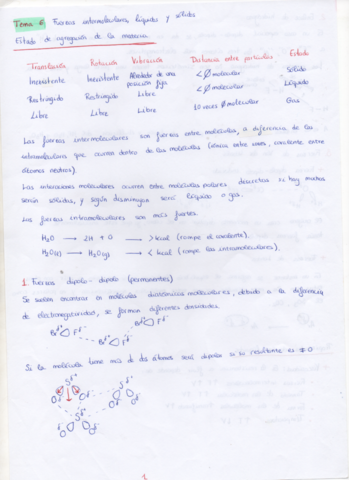 Tema 6: Fuerzas intermoleculares, líquidos y sólidos
Estado de agregación de la materia.
Translación Rotación Vibración Distancia entre partículas Estado
Inexistente Inexistente Alrededor de una posición fija < Ø molecular Sólido
Restringido Restringido Libre < Ø molecular Líquido
Libre Libre Libre 10 veces Ø molecular Gas
Las fuerzas intermoleculares son fuerzas entre moléculas, a diferencia de las
intramoleculares que ocurren dentro de las moléculas (iónica entre iones, covalente entre
átomos neutros).
Las interacciones moleculares ocurren entre moléculas polares discretas si hay muchas
serán sólidas, y según disminuyan será líquido o gas.
Las fuerzas intramoleculares son más fuertes.
H₂O → 2H + O > kcal (rompe el covalente).
H₂O(l) → H₂O(g) < kcal (rompe las intramoleculares).
1. Fuerzas dipolo-dipolo (permanentes)
Se suelen encontrar en moléculas diatómicas moleculares, debido a la diferencia
de electronegatividad, se forman diferentes densidades.
Br δ+ F δ-
Br δ+ F δ-
Si la molécula tiene más de dos átomos será dipolo si su resultante es ≠ 0
S δ+
O O
S δ+ S δ+
O O O O
1